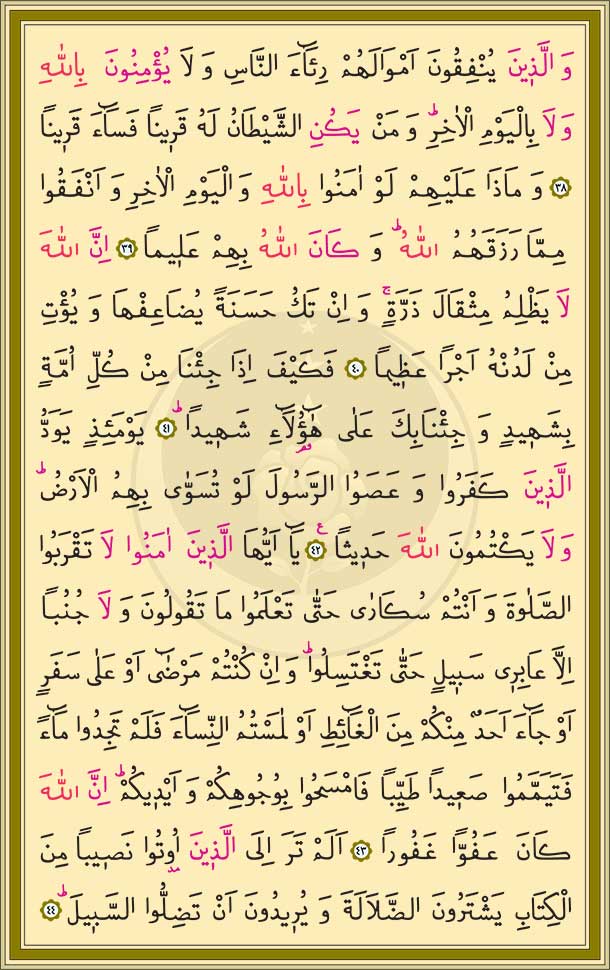 وَ الَّذ۪ينَ يُنْفِقُونَ اَمْوَالَهُمْ رِئَٓاءَ النَّاسِ وَ لَا يُؤْمِنُونَ بِاللّٰهِ
وَلَا بِالْيَوْمِ الْاٰخِرِۜ وَ مَنْ يَكُنِ الشَّيْطَانُ لَهُ قَر۪يناً فَسَٓاءَ قَر۪يناً
﴿٣٨﴾ وَ مَاذَا عَلَيْهِمْ لَوْ اٰمَنُوا بِاللّٰهِ وَ الْيَوْمِ الْاٰخِرِ وَ اَنْفَقُوا
مِمَّا رَزَقَهُمُ اللّٰهُۜ وَ كَانَ اللّٰهُ بِهِمْ عَل۪يماً ﴿٣٩﴾ اِنَّ اللّٰهَ
لَا يَظْلِمُ مِثْقَالَ ذَرَّةٍۚ وَ اِنْ تَكُ حَسَنَةً يُضَاعِفْهَا وَ يُؤْتِ
مِنْ لَدُنْهُ اَجْرًا عَظ۪يماً ﴿٤٠﴾ فَكَيْفَ اِذَا جِئْنَا مِنْ كُلِّ اُمَّةٍ
بِشَه۪يدٍ وَ جِئْنَابِكَ عَلٰى هٰٓؤُ۬لَٓاءِ شَه۪يداًۜ ﴿٤١﴾ يَوْمَئِذٍ يَوَدُّ
الَّذ۪ينَ كَفَرُوا وَ عَصَوُا الرَّسُولَ لَوْ تُسَوّٰى بِهِمُ الْاَرْضُۜ
وَلَا يَكْتُمُونَ اللّٰهَ حَد۪يثاً ﴿٤٢﴾ يَٓا اَيُّهَا الَّذ۪ينَ اٰمَنُوا لَا تَقْرَبُوا
الصَّلٰوةَ وَ اَنْتُمْ سُكَارٰى حَتّٰى تَعْلَمُوا مَا تَقُولُونَ وَ لَا جُنُباً
اِلَّا عَابِر۪ى سَب۪يلٍ حَتّٰى تَغْتَسِلُواۜ وَ اِنْ كُنْتُمْ مَرْضٰٓى اَوْ عَلٰى سَفَرٍ
اَوْ جَٓاءَ اَحَدٌ مِنْكُمْ مِنَ الْغَٓائِطِ اَوْ لٰمَسْتُمُ النِّسَٓاءَ فَلَمْ تَجِدُوا مَٓاءً
فَتَيَمَّمُوا صَع۪يداً طَيِّباً فَامْسَحُوا بِوُجُوهِكُمْ وَ اَيْد۪يكُمْۜ اِنَّ اللّٰهَ
كَانَ عَفُوًّا غَفُوراً ﴿٤٣﴾ اَلَمْ تَرَ اِلَى الَّذ۪ينَ اُو۫تُوا نَص۪يباً مِنَ
الْكِتَابِ يَشْتَرُونَ الضَّلَالَةَ وَ يُر۪يدُونَ اَنْ تَضِلُّوا السَّب۪يلَۜ ﴿٤٤﴾